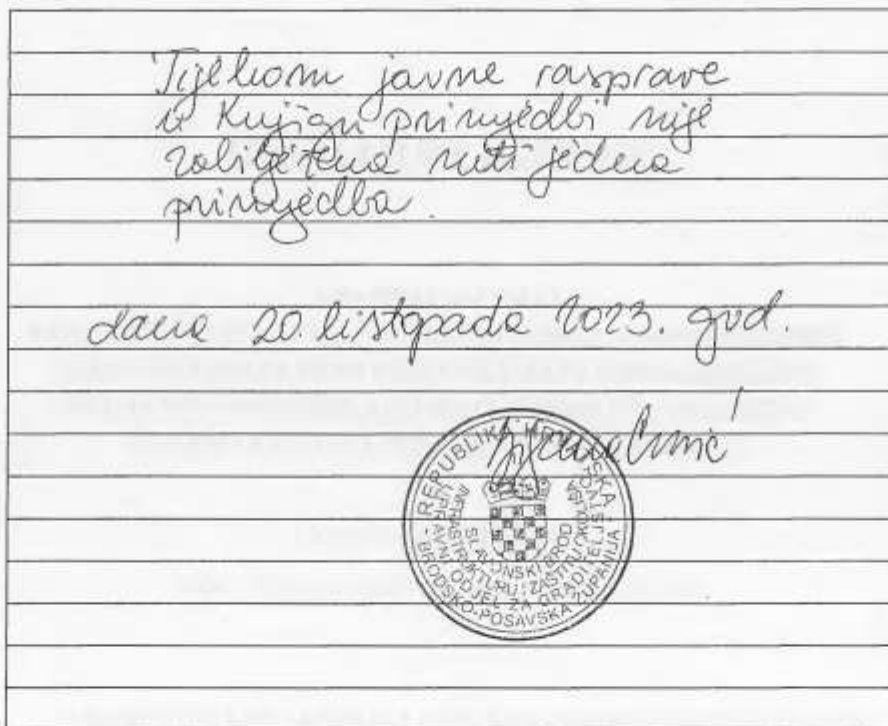 Tijekom javne rasprave
u Knjigu primjedbi nije
zabilježena niti jedna
primjedba.
dana 20. listopada 2023. god.
REPUBLIKA HRVATSKA
BRODSKO-POSAVSKA ŽUPANIJA
UPRAVNI ODJEL ZA GRADITELJSTVO
INFRASTRUKTURU I ZAŠTITU OKOLIŠA
SLAVONSKI BROD